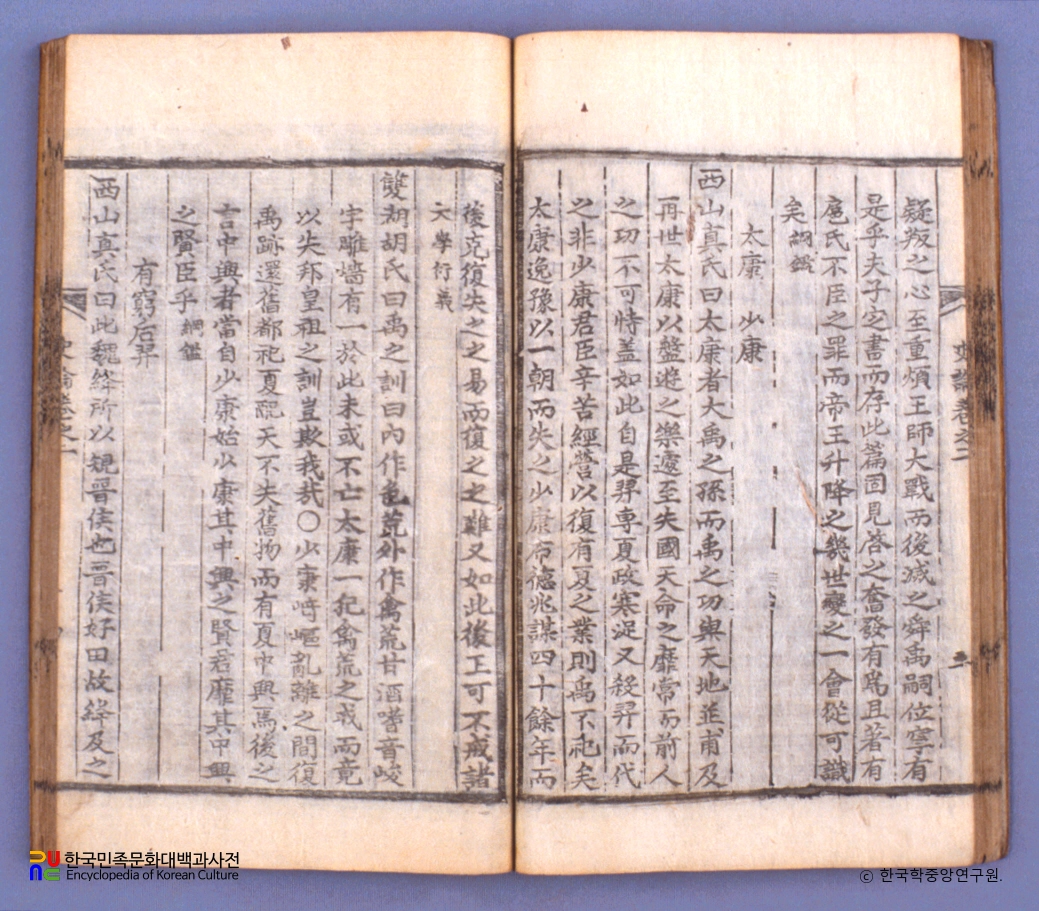 疑叛之心至重煩王師大戰而後滅之舜禹嗣位寧有
是乎夫子定書而存此篇固見啓之奮發有爲且著有
扈氏不臣之罪而帝王升降之幾世變之一會從可識
矣綱鑑
太康 少康
西山真氏曰太康者大禹之孫而禹之功與天地並甫及
再世太康以盤遊之樂遽至失國天命之靡常而前人
之功不可恃盖如此自是羿專夏政寒浞又殺羿而代
之非少康君臣辛苦經營以復有夏之業則禹不祀矣
太康逸豫以一朝而失之少康布德兆謀四十餘年而
後克復失之之易而復之之難又如此後王可不戒諸
大學衍義
雙湖胡氏曰禹之訓曰內作色荒外作禽荒甘酒嗜音峻
宇雕墻有一於此未或不亡太康一犯禽荒之戒而竟
以失邦皇祖之訓豈欺我哉○少康崎嶇亂離之間復
禹跡還舊都祀夏配天不失舊物而有夏中興焉後之
言中興者當自少康始少康其中興之賢君靡其中興
之賢臣乎綱鑑
有窮后羿
西山真氏曰此魏絳所以規晋侯也晋侯好田故絳及之
史論卷之二
史論卷之二
한국민족문화대백과사전
Encyclopedia of Korean Culture
© 한국학중앙연구원.